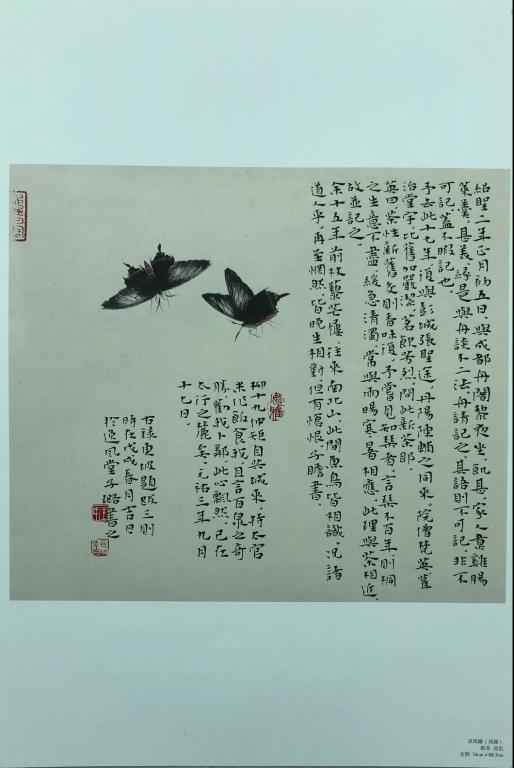 紹聖二年正月初五日與成都舟闍黎夜坐飢甚家人煮雞腸
菜羹甚美緣是與舟談不二法舟請記之其語則不可記非不
可記蓋不暇記也
予去此十七年復與彭城張聖途丹陽陳輔之同來院僧梵英葺
治堂宇比舊加嚴潔茗飲芳烈問此新茶耶
英曰茶性新舊交則香味復予嘗見知琴者言琴不百年則桐
之生意不盡緩急清濁常與雨暘寒暑相應此理與茶相近
故並記之
余十五年前杖藜芒屨往來南北山此間魚鳥皆相識況諸
道人乎再至惘然皆晚生相對但有愴恨子瞻書
柳十九仲矩自共城來持太官
米作飯食我且言百泉之奇
勝勸我卜鄰此心飄然已在
太行之麓矣元祐三年九月
十七日
右錄東坡題跋三則
時在戊戌春月吉日
於逸風堂子璐書之
紙本 設色
全圖 34cm×88.5cm